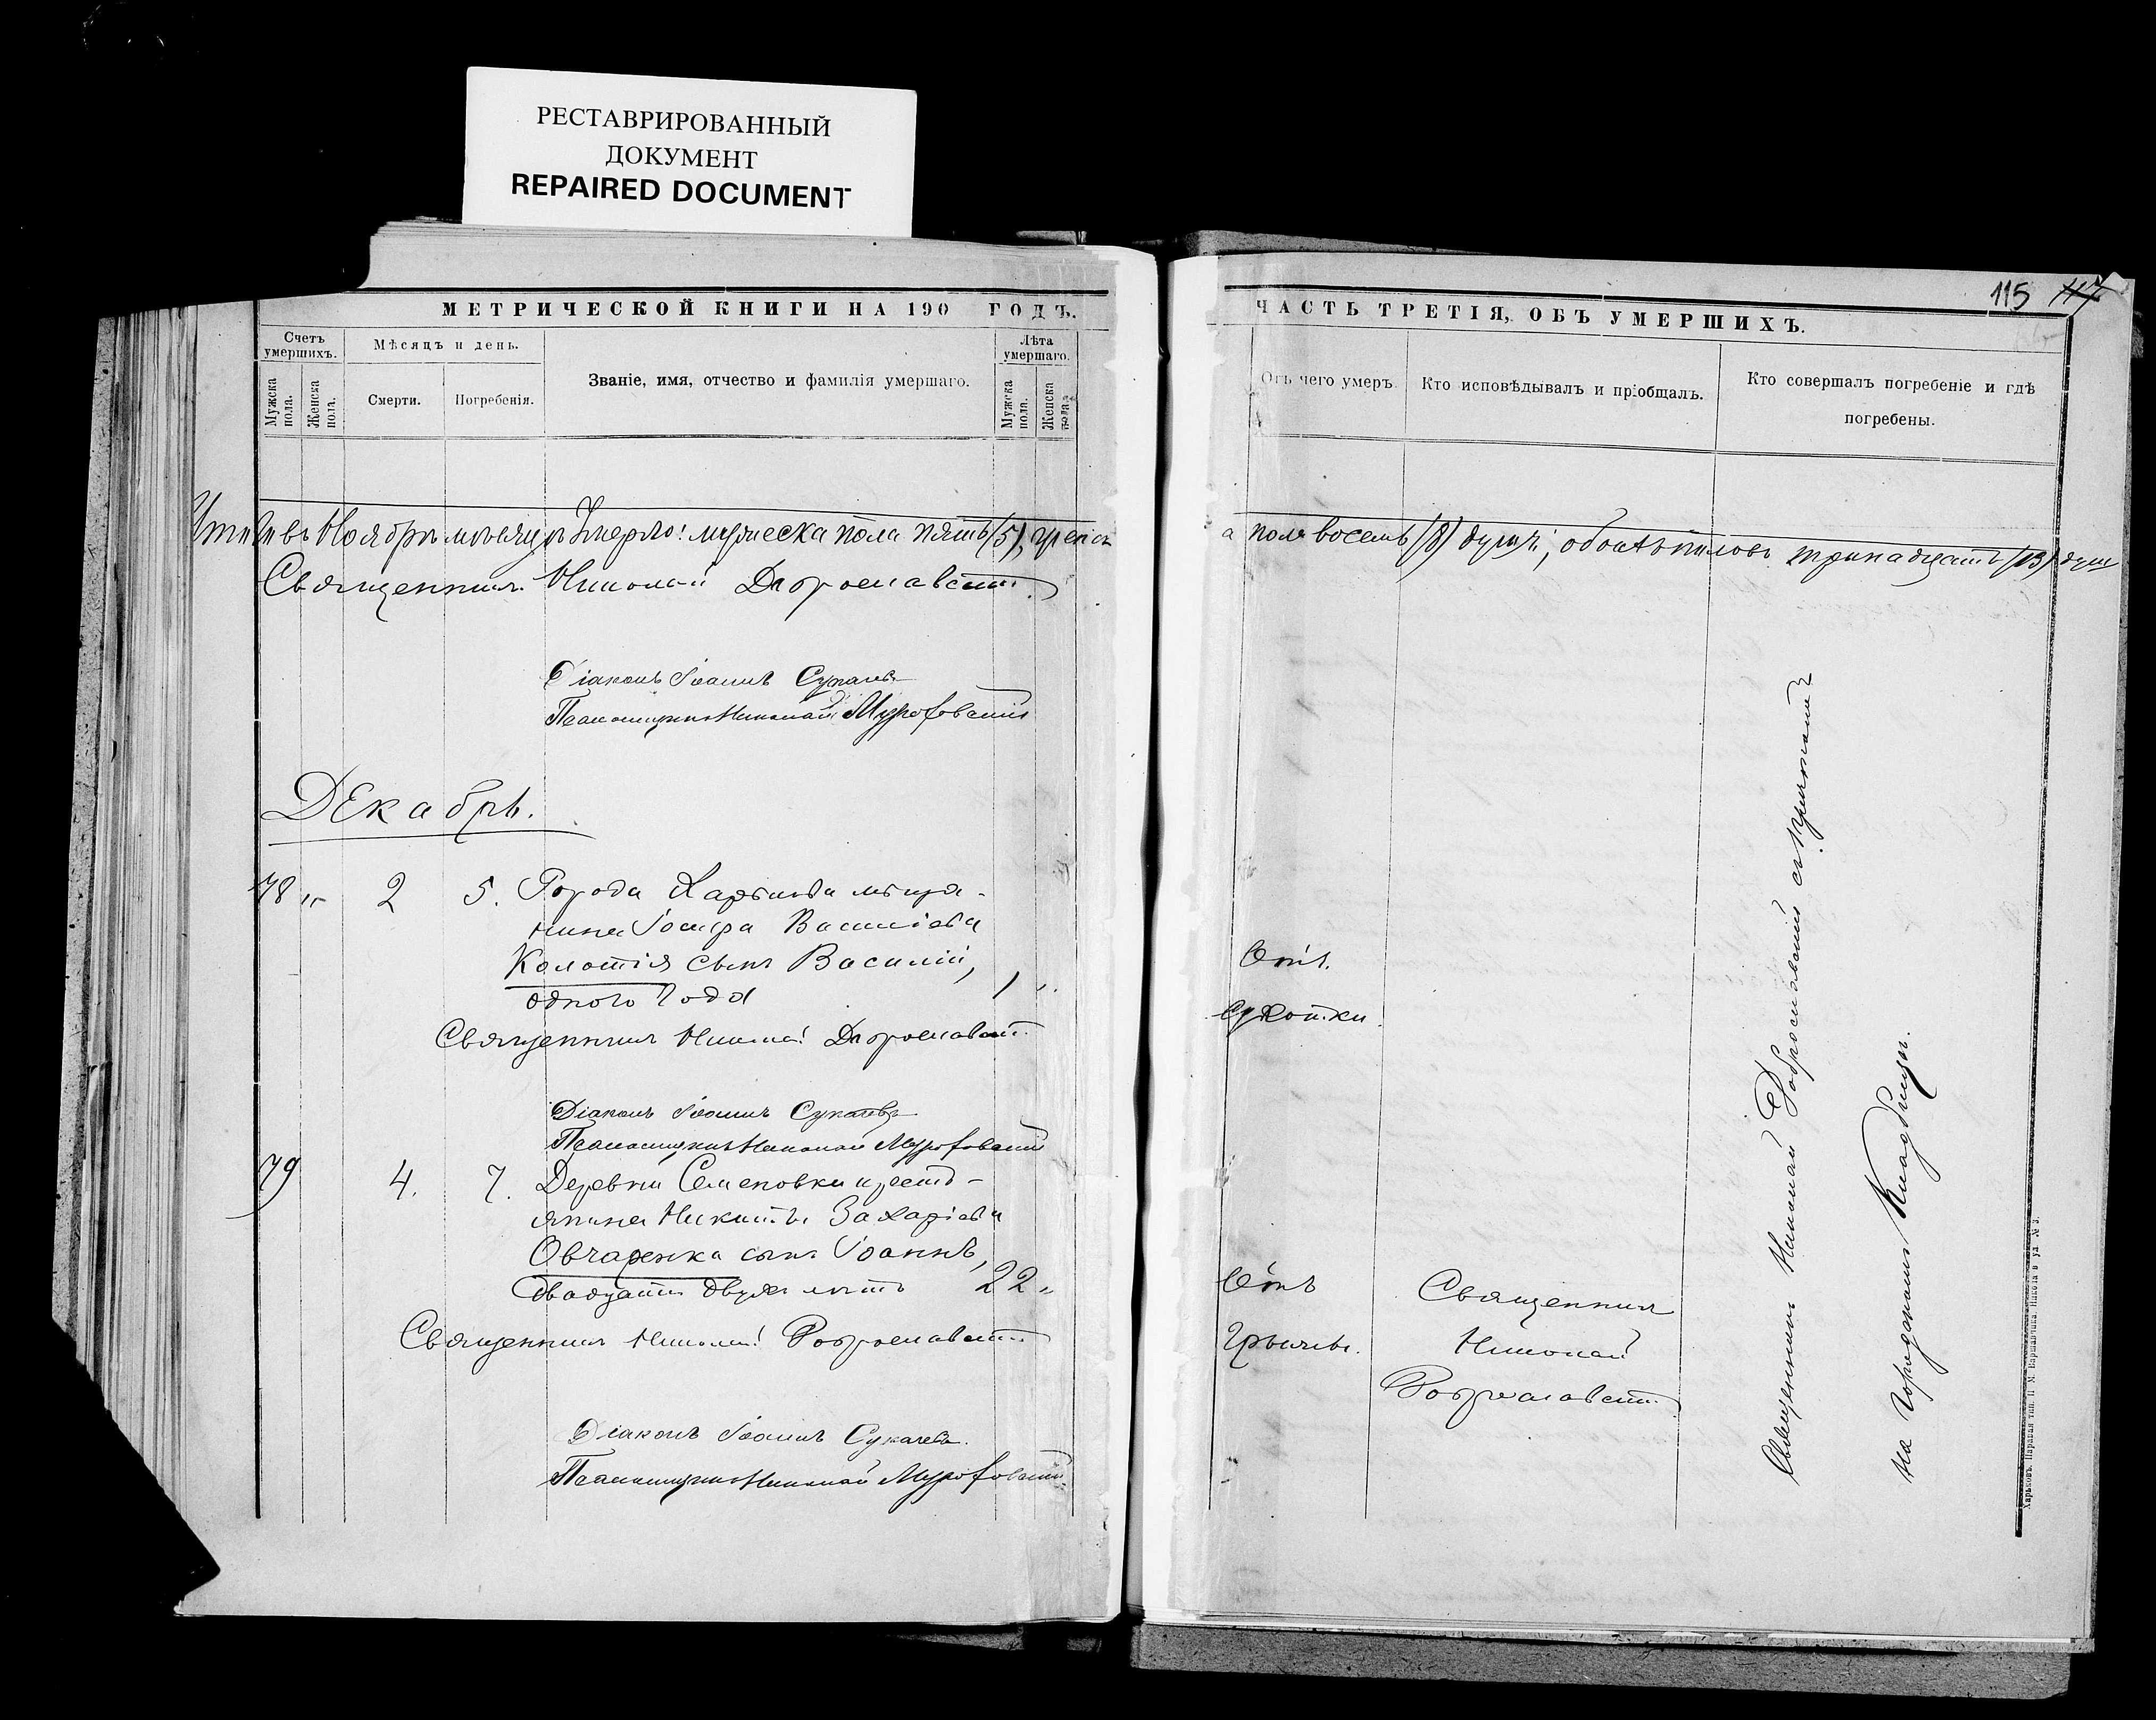 РЕСТАВРИРОВАННЫЙ
ДОКУМЕНТ
REPAIRED DOCUMENT
МЕТРИЧЕСКОЙ КНИГИ НА 190 ГОДЪ.
Счетъ умершихъ.
Мѣсяцъ и день.
Лѣта умершаго.
Мужска пола.
Женска пола.
Смерти.
Погребенія.
Званіе, имя, отчество и фамилія умершаго.
Мужска пола.
Женска пола.
въ Ноябрѣ мѣсяцѣ Умерло: мужеска пола пять (5), женск
Священникъ Николай Доброславскій
Діаконъ Іоаннъ Сукачевъ
Псаломщикъ Николай
Декабрь.
78 " 2 5. Города Харькова мѣща-
нина Іосифа Васильева
Колотія сынъ Василій,
одного года 1 "
Священникъ Николай Доброславскій
Діаконъ Іоаннъ Сукачевъ
Псаломщикъ Николай
79 4. 7. Деревни Семеновки крестъ-
янина Никиты Захаріева
Овчаренка сынъ Іоаннъ,
двадцати двухъ лѣтъ 22 "
Священникъ Николай Доброславскій
Діаконъ Іоаннъ Сукачевъ.
Псаломщикъ Николай
115 117
ЧАСТЬ ТРЕТІЯ, ОБЪ УМЕРШИХЪ.
Отъ чего умеръ.
Кто исповѣдывалъ и пріобщалъ.
Кто совершалъ погребеніе и гдѣ
погребены.
а пола восемь (8) душъ; обоихъ половъ тринадцать (13) душ
Отъ
сухотки.
Отъ
Грыжи.
Священникъ
Николай
Доброславскій
Священникъ Николай Доброславскій съ причтомъ
на городскомъ кладбищѣ.